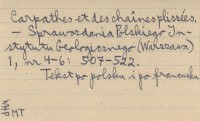 Carpathes et des chaînes plissées.
— Sprawozdania Polskiego In-
stytutu Geologicznego (Warszawa)
1, nr 4-6: 507-522.
Tekst po polsku i po francusku
MT